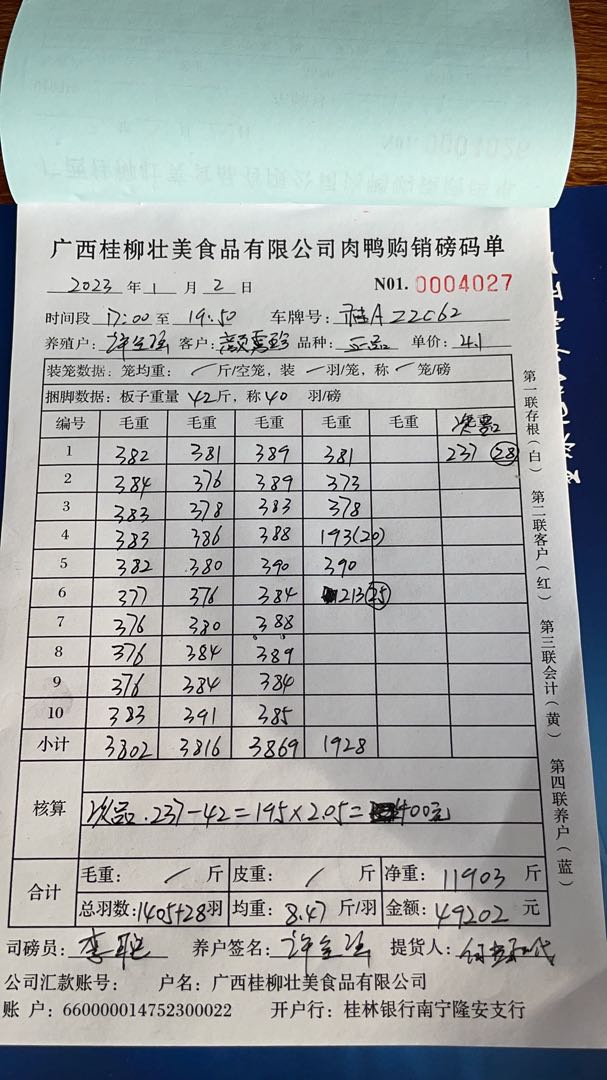 广西桂柳壮美食品有限公司肉鸭购销磅码单
2023 年 1 月 2 日 N01. 0004027
时间段 17:00 至 19:50 车牌号: 桂A22C62
养殖户: 客户: 品种: 正品 单价: 4.1
装笼数据: 笼均重: / 斤/空笼, 装 / 羽/笼, 称 / 笼/磅
捆脚数据: 板子重量 42 斤, 称 40 羽/磅
编号 毛重 毛重 毛重 毛重 毛重 次品
1 382 381 389 381 237 (28)
2 384 376 389 373
3 383 378 383 378
4 383 386 388 193(20)
5 382 380 390 390
6 377 376 384 213(25)
7 376 380 388
8 376 384 389
9 376 384 384
10 383 391 385
小计 3802 3816 3869 1928
核算 次品.237-42=195×2.05=400元
合计 毛重: / 斤 皮重: / 斤 净重: 11903 斤
总羽数: 1405+28 羽 均重: 8.47 斤/羽 金额: 49202 元
司磅员: 养户签名: 提货人:
公司汇款账号: 户名: 广西桂柳壮美食品有限公司
账户: 660000014752300022 开户行: 桂林银行南宁隆安支行
第一联存根(白)
第二联客户(红)
第三联会计(黄)
第四联养户(蓝)